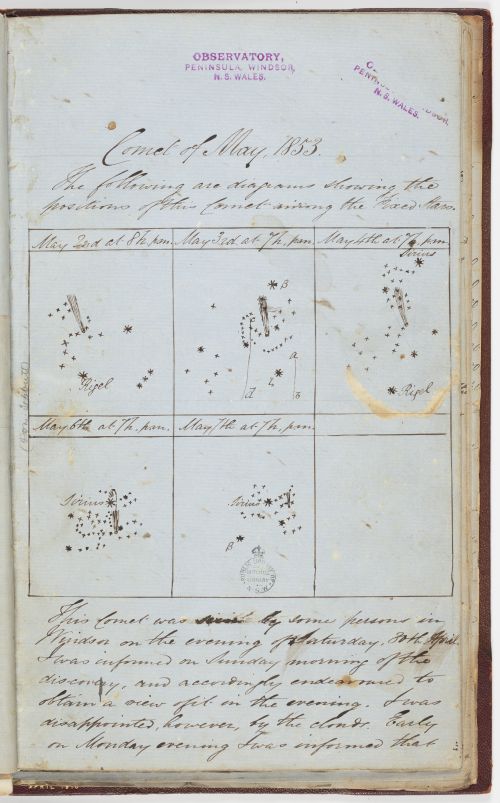 OBSERVATORY,
PENINSULA, WINDSOR,
N. S. WALES.
PENINSULA, WINDSOR,
N. S. WALES.
Comet of May, 1853.
The following are diagrams showing the
positions of this Comet among the Fixed Stars.
May 2nd at 8h. p.m.
May 3rd at 7h. p.m.
May 4th at 7h. p.m.
Sirius
β
a
Rigel
Rigel
May 6th at 7h. p.m.
May 7th at 7h. p.m.
Sirius
Sirius
β
This Comet was seen by some persons in
Windsor on the evening of Saturday, 30th April.
I was informed on Sunday morning of the
discovery, and accordingly endeavoured to
obtain a view of it in the evening. I was
disappointed, however, by the clouds. Early
on Monday evening I was informed that